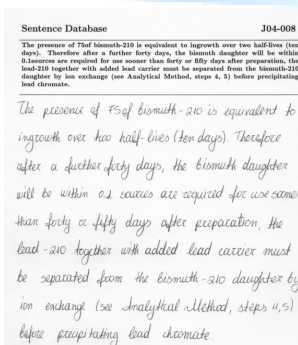 Sentence Database
J04-008
The presence of 75of bismuth-210 is equivalent to ingrowth over two half-lives (ten
days). Therefore after a further forty days, the bismuth daughter will be within
0.1sources are required for use sooner than forty or fifty days after preparation, the
lead-210 together with added lead carrier must be separated from the bismuth-210
daughter by ion exchange (see Analytical Method, steps 4, 5) before precipitating
lead chromate.
The presence of 75of bismuth-210 is equivalent to
ingrowth over two half-lives (ten days). Therefore
after a further forty days, the bismuth daughter
will be within 0.1 sources are required for use sooner
than forty or fifty days after preparation, the
lead-210 together with added lead carrier must
be separated from the bismuth-210 daughter by
ion exchange (see Analytical Method, steps 4,5)
before precipitating lead chromate.